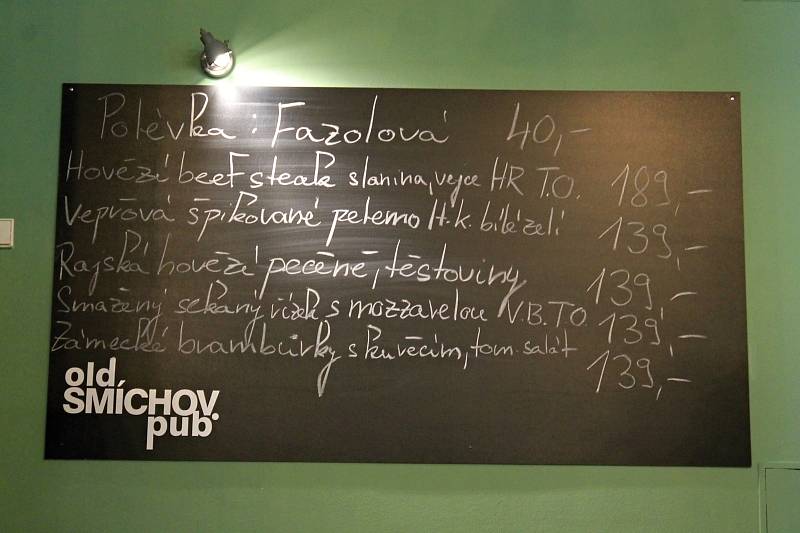 Polévka : Fazolová 40,-
Hovězí beefsteak slanina, vejce HR T.O. 189,-
Vepřová špikované peterno H.k. bílé zelí 139,-
Rajská hovězí pečeně, těstoviny 139,-
Smažený sekaný řízek s mozzarelou V.B.T.O. 139,-
Zámecké brambůrky s kuřecím, tom. salát 139,-
old
SMÍCHOV.
pub.